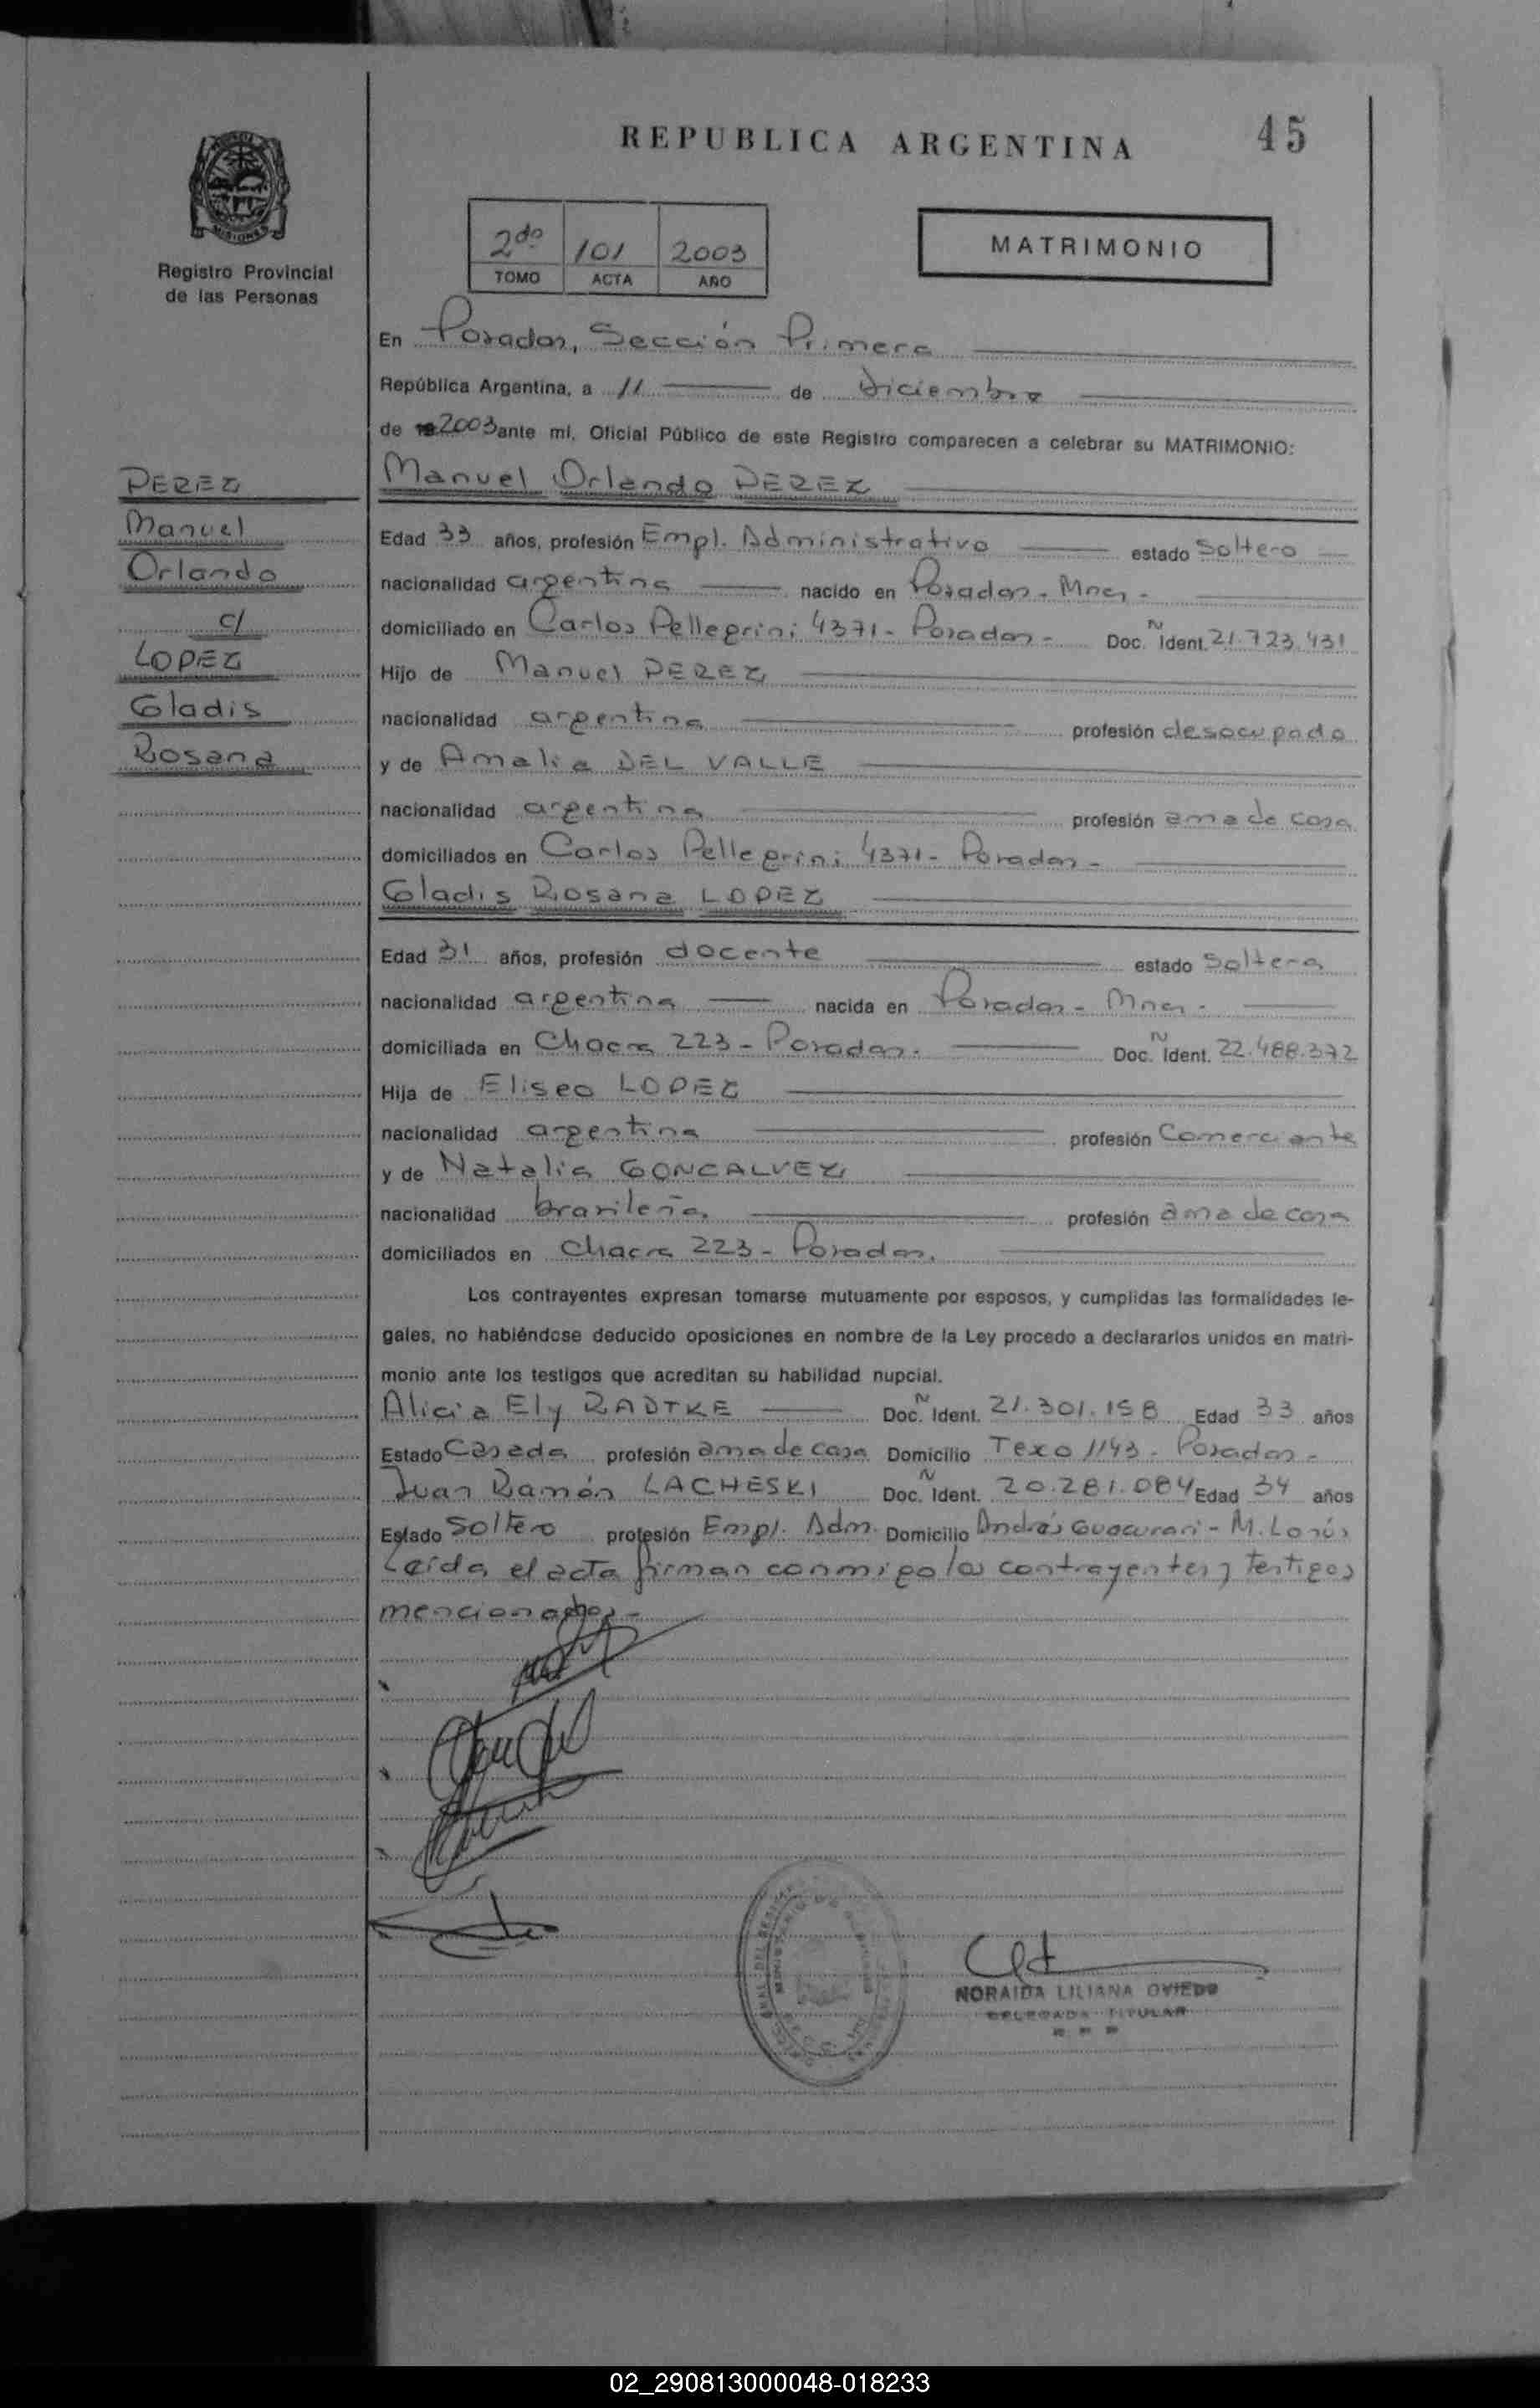 REPUBLICA ARGENTINA
45
MISIONES
Registro Provincial
de las Personas
2do 101 2003
TOMO ACTA AÑO
MATRIMONIO
En Posadas, Sección Primera
República Argentina, a 11 de Diciembre
de 2003 ante mi, Oficial Público de este Registro comparecen a celebrar su MATRIMONIO:
PEREZ
Manuel
Orlando
c/
LOPEZ
Gladis
Rosana
Manuel Orlando PEREZ
Edad 33 años, profesión Empl. Administrativo estado Soltero
nacionalidad argentina nacido en Posadas - Mnes -
domiciliado en Carlos Pellegrini 4371 - Posadas - Doc. N Ident. 21.723.431
Hijo de Manuel PEREZ
nacionalidad argentina profesión desocupado
y de Amalia DEL VALLE
nacionalidad argentina profesión ama de casa
domiciliados en Carlos Pellegrini 4371 - Posadas -
Gladis Rosana LOPEZ
Edad 31 años, profesión docente estado Soltera
nacionalidad argentina nacida en Posadas - Mnes -
domiciliada en Chacra 223 - Posadas. Doc. N Ident. 22.488.372
Hija de Eliseo LOPEZ
nacionalidad argentina profesión Comerciante
y de Natalia GONCALVEZ
nacionalidad brasileña, profesión ama de casa
domiciliados en Chacra 223 - Posadas.
Los contrayentes expresan tomarse mutuamente por esposos, y cumplidas las formalidades le-
gales, no habiéndose deducido oposiciones en nombre de la Ley procedo a declararlos unidos en matri-
monio ante los testigos que acreditan su habilidad nupcial.
Alicia Ely RADTKE Doc. N Ident. 21.301.158 Edad 33 años
Estado Casada profesión ama de casa Domicilio Texo 1143 - Posadas -
Juan Ramón LACHESKI Doc. N Ident. 20.281.084 Edad 34 años
Estado Soltero profesión Empl. Adm. Domicilio Andrés Guacurari - M. Lanús
Leída el acta firman conmigo los contrayentes y testigos
mencionados -
NORAIDA LILIANA OVIEDO
DELEGADA TITULAR
02_290813000048-018233